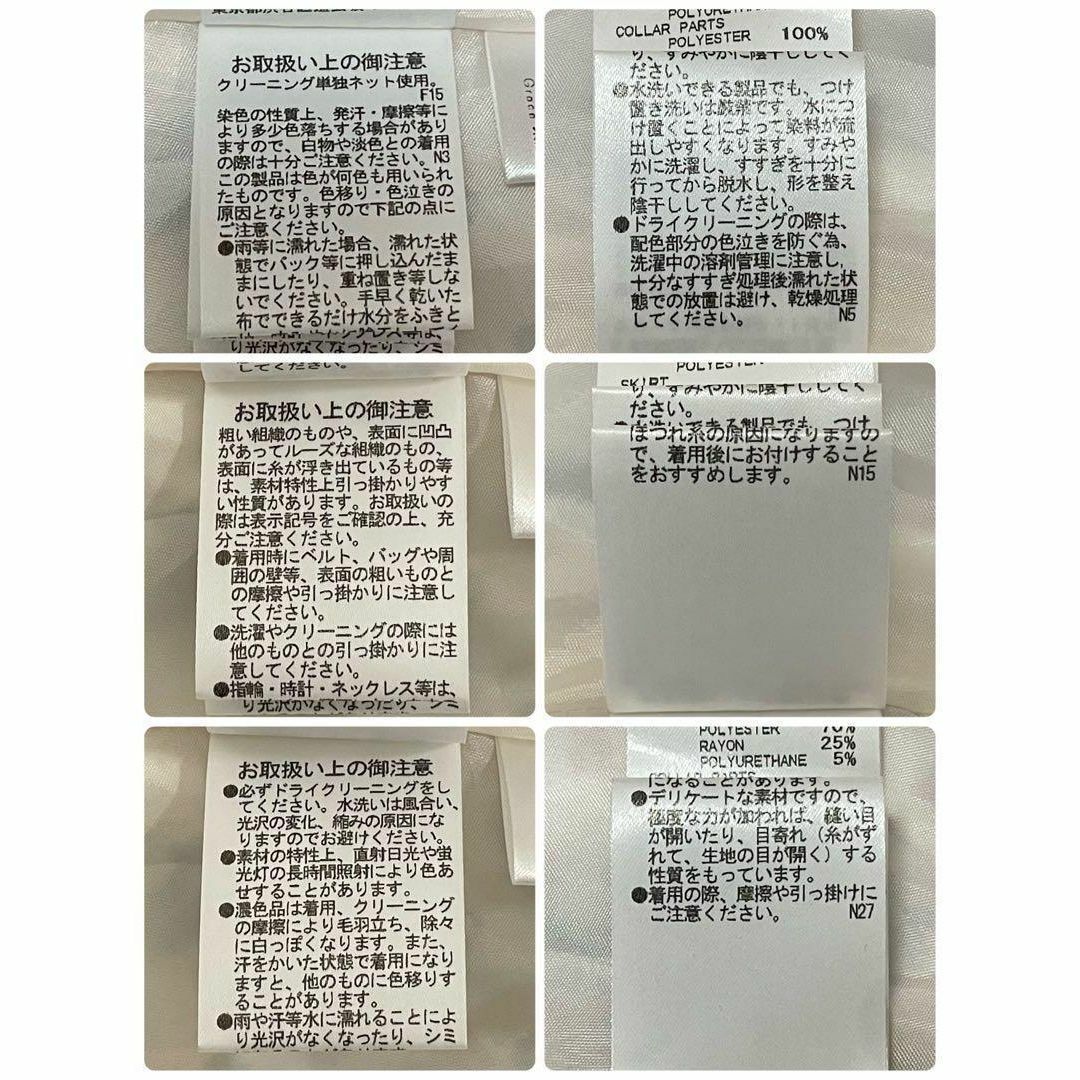 お取扱い上の御注意
クリーニング単独ネット使用。
F15
染色の性質上、発汗・摩擦等に
より多少色落ちする場合があり
ますので、白物や淡色との着用
の際は十分ご注意ください。N3
この製品は色が何色も用いられ
たものです。色移り・色泣きの
原因となりますので下記の点に
ご注意ください。
●雨等に濡れた場合、濡れた状
態でバック等に押し込んだま
まにしたり、重ね置き等しな
いでください。手早く乾いた
布でできるだけ水分をふきと
り光沢がなくなったり、シミ
COLLAR PARTS
POLYESTER 100%
り、すみやかに陰干ししてく
ださい。
●水洗いできる製品でも、つけ
置き洗いは厳禁です。水につ
け置くことによって染料が流
出しやすくなります。すみや
かに洗濯し、すすぎを十分に
行ってから脱水し、形を整え
陰干ししてください。
●ドライクリーニングの際は、
配色部分の色泣きを防ぐ為、
洗濯中の溶剤管理に注意し、
十分なすすぎ処理後濡れた状
態での放置は避け、乾燥処理
してください。 N5
お取扱い上の御注意
粗い組織のものや、表面に凹凸
があってルーズな組織のもの、
表面に糸が浮き出ているもの等
は、素材特性上引っ掛かりやす
い性質があります。お取扱いの
際は表示記号をご確認の上、充
分ご注意ください。
●着用時にベルト、バッグや周
囲の壁等、表面の粗いものと
の摩擦や引っ掛かりに注意し
てください。
●洗濯やクリーニングの際には
他のものとの引っ掛かりに注
意してください。
●指輪・時計・ネックレス等は、
り光沢がなくなったり、シミ
POLYESTER
SKIRT
り、すみやかに陰干ししてく
ださい。
ほつれ糸の原因になりますの
で、着用後にお付けすること
をおすすめします。 N15
お取扱い上の御注意
●必ずドライクリーニングをし
てください。水洗いは風合い、
光沢の変化、縮みの原因にな
りますのでお避けください。
●素材の特性上、直射日光や蛍
光灯の長時間照射により色あ
せすることがあります。
●濃色品は着用、クリーニング
の摩擦により毛羽立ち、除々
に白っぽくなります。また、
汗をかいた状態で着用になり
ますと、他のものに色移りす
ることがあります。
●雨や汗等水に濡れることによ
り光沢がなくなったり、シミ
POLYESTER 70%
RAYON 25%
POLYURETHANE 5%
になることがあります。
●デリケートな素材ですので、
極度な力が加われば、縫い目
が開いたり、目寄れ（糸がず
れて、生地の目が開く）する
性質をもっています。
●着用の際、摩擦や引っ掛けに
ご注意ください。 N27